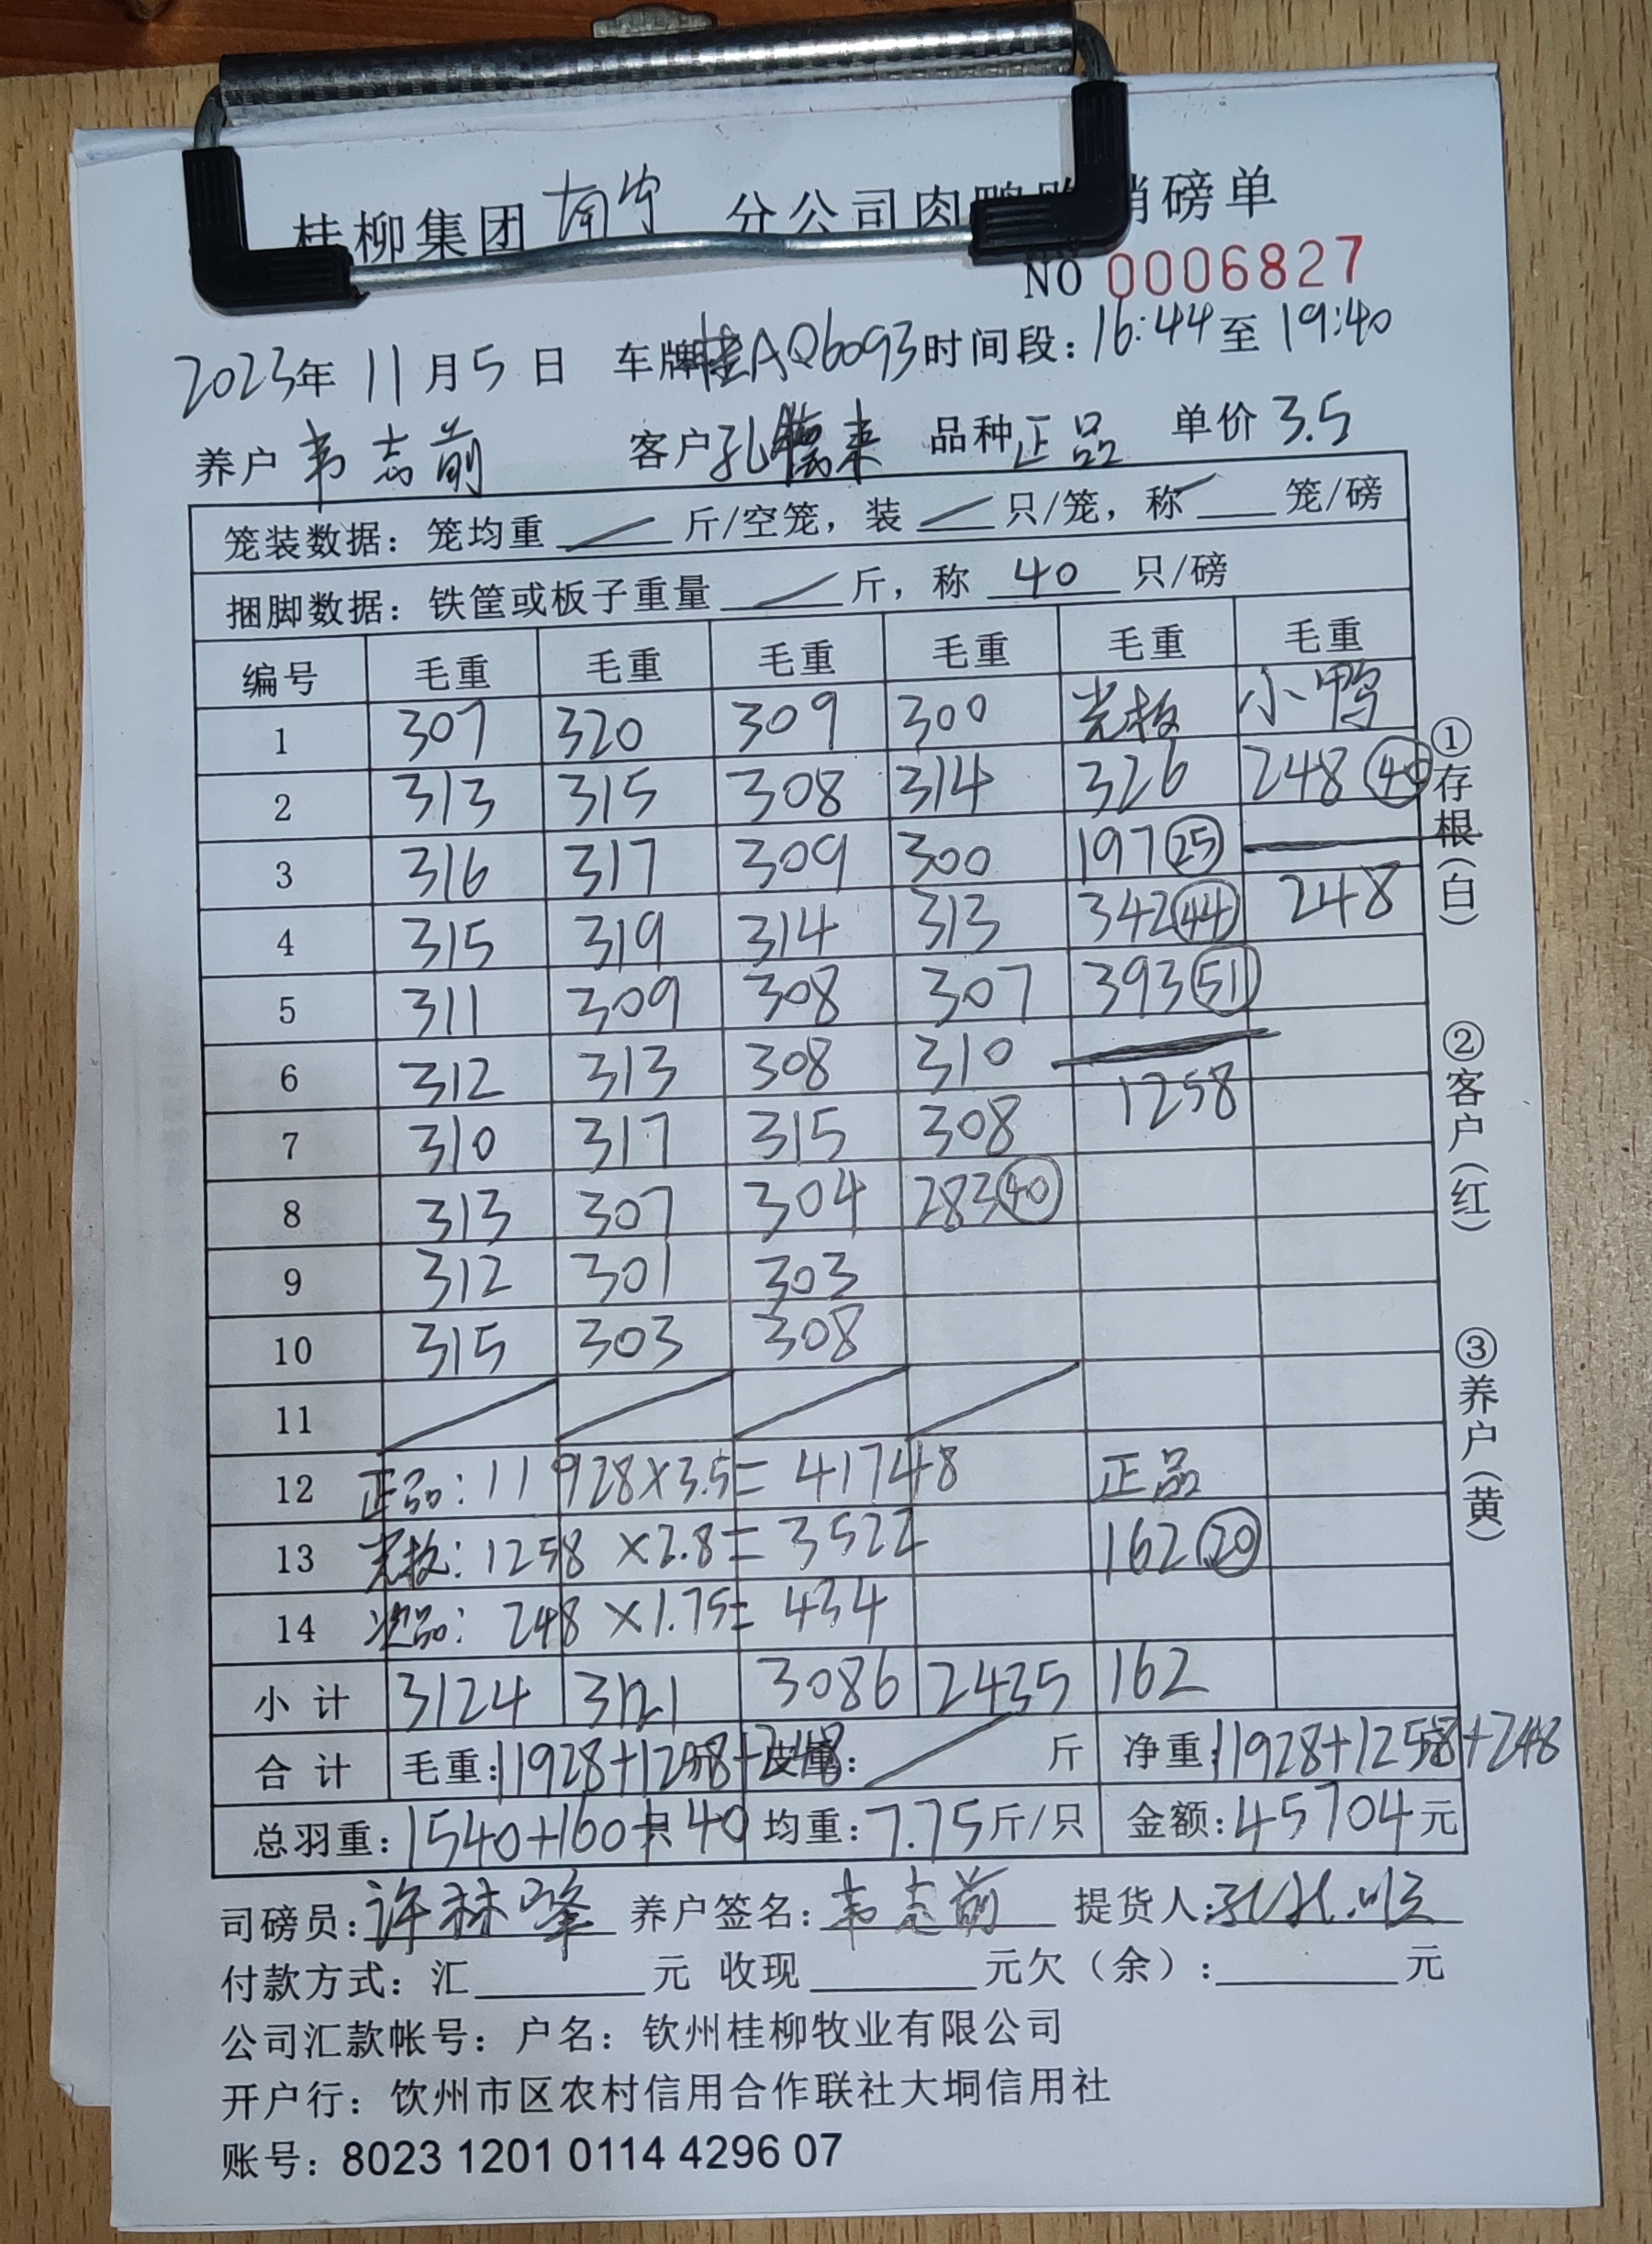 桂柳集团 南宁 分公司肉鸭 销磅单
NO 0006827
2023年 11月5日 车牌桂AQ6093时间段：16:44至19:40
养户 韦志萌 客户孔 来 品种正品 单价3.5
笼装数据：笼均重 / 斤/空笼，装 / 只/笼，称 / 笼/磅
捆脚数据：铁筐或板子重量 / 斤，称 40 只/磅
编号 毛重 毛重 毛重 毛重 毛重 毛重
1 307 320 309 300 光板 小鸭
2 313 315 308 314 326 248 ㊵
3 316 317 309 300 197 ㉕
4 315 319 314 313 342 ㊹ 248
5 311 309 308 307 393 (51)
6 312 313 308 310
7 310 317 315 308 1258
8 313 307 304 283 ㊵
9 312 301 303
10 315 303 308
11 / / / /
12 正品：11928×3.5=41748 正品
13 光板：1258×2.8=3522 162 ⑳
14 次品：248×1.75=434
小计 3124 3121 3086 2435 162
合计 毛重：11928+1258+248 皮重： / 斤 净重：11928+1258+248
总羽重：1540+160+40只 均重：7.75斤/只 金额：45704元
司磅员：许林峰 养户签名：韦志萌 提货人：孔
付款方式：汇 元 收现 元欠（余）： 元
公司汇款帐号：户名：钦州桂柳牧业有限公司
开户行：饮州市区农村信用合作联社大垌信用社
账号：8023 1201 0114 4296 07
①存根（白）
②客户（红）
③养户（黄）